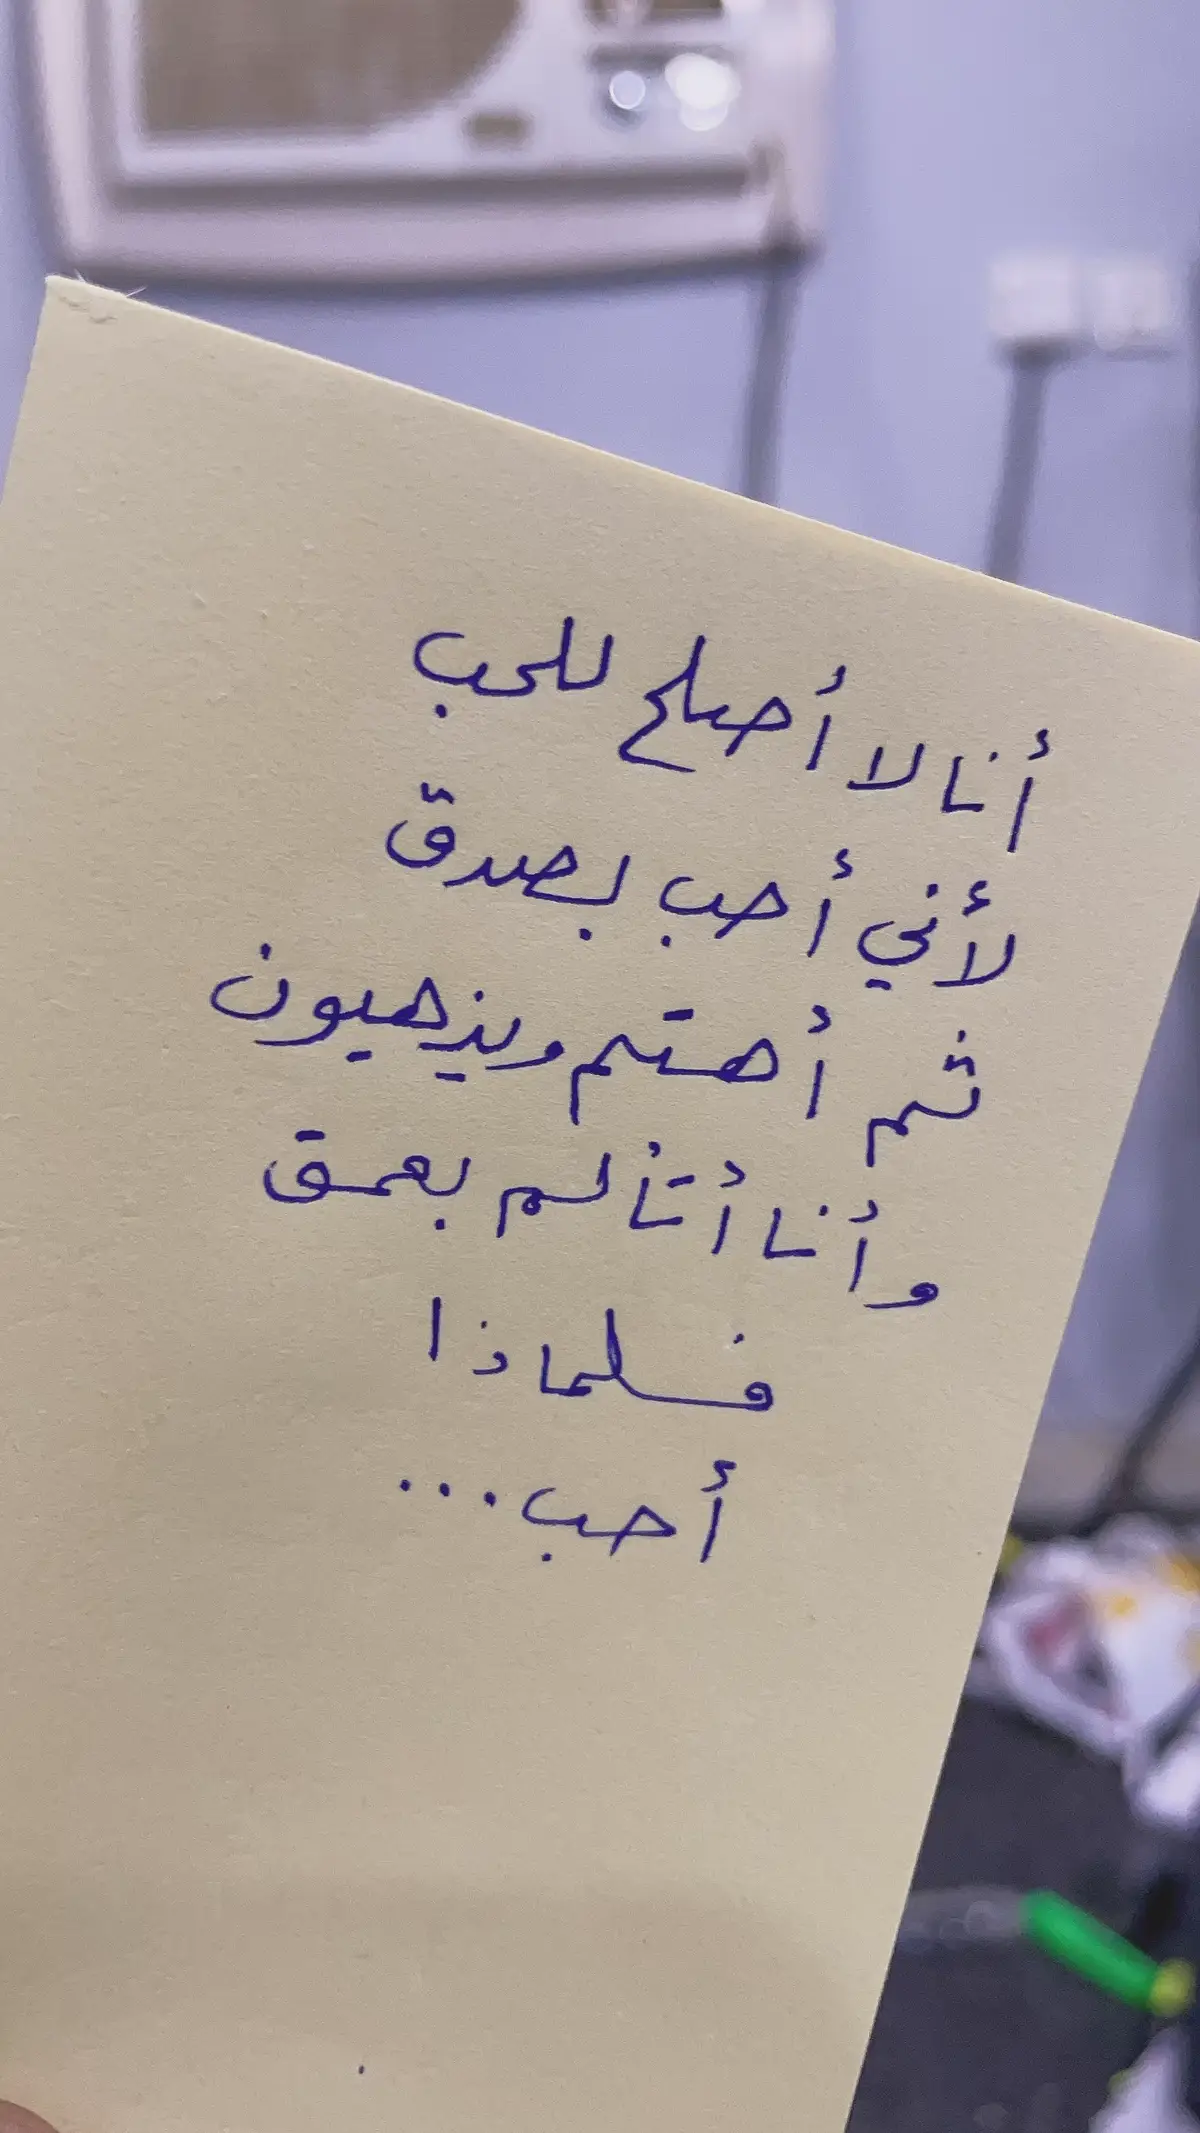 أنا لا أصلح للحب
لأني أحب بصدق
ثم أهتم ويذهبون
وأنا أتألم بعمق
فلماذا
أحب...